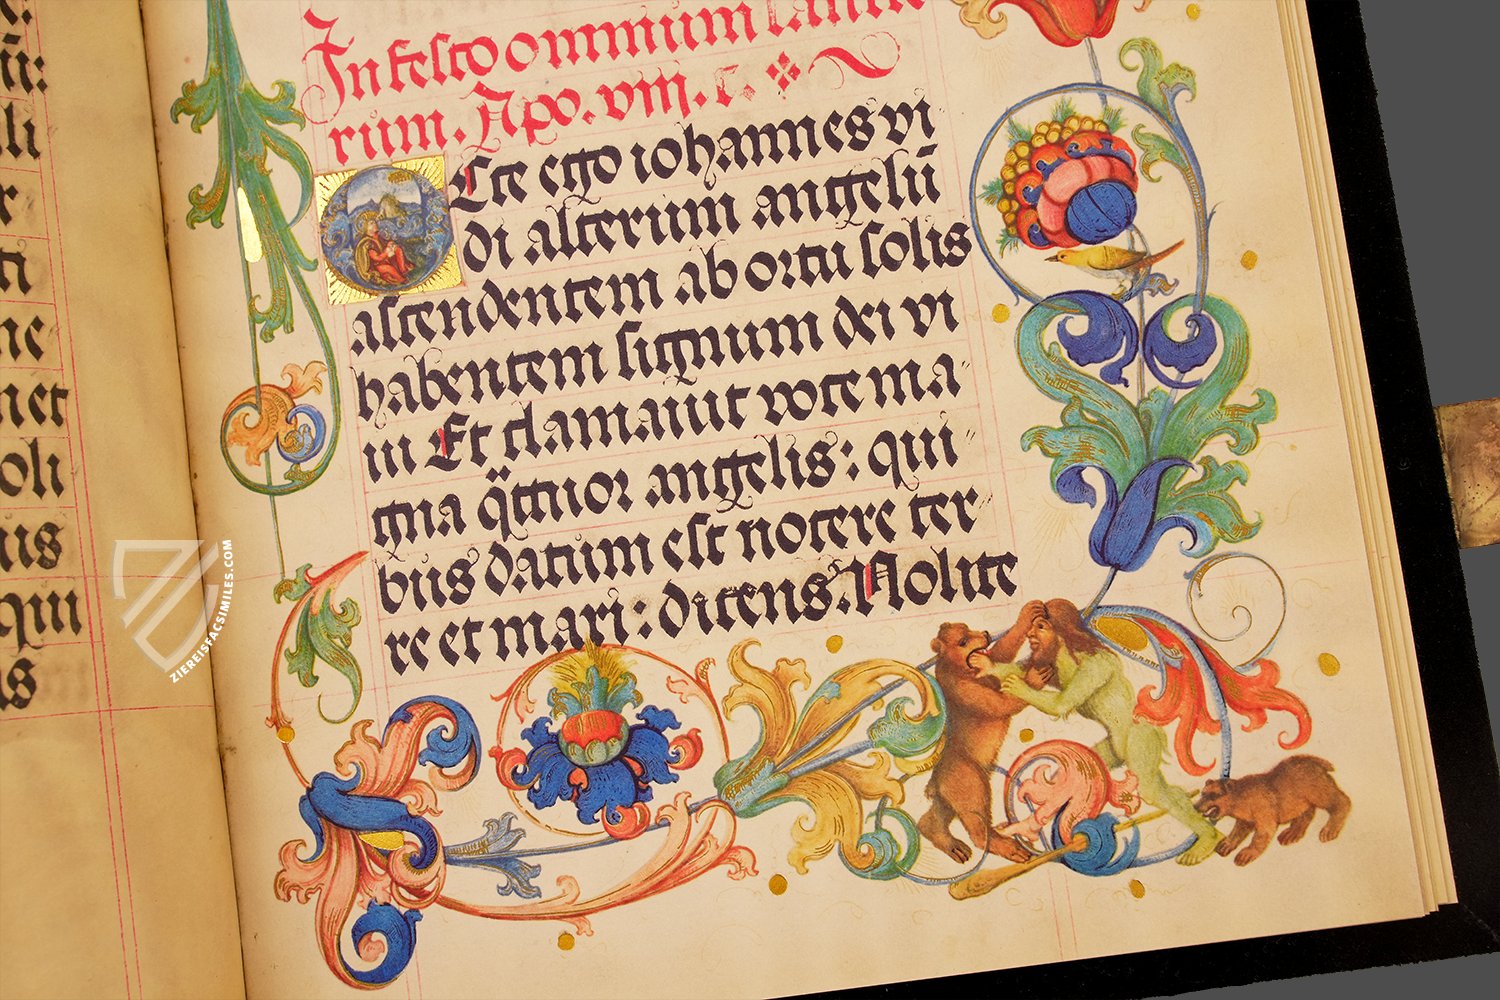 ū:
li
ti
ne
net
oli
us
qui
In festo omnium sancto
rum. Apo. vii. c.
Ecce ego iohannes vi
di alterum angelū
ascendentem ab ortu solis
habentem signum dei vi
ui Et clamauit voce ma-
gna qttuor angelis: qui-
bus datum est nocere ter-
re et mari: dicens. Nolite
ZIEREISFACSIMILES.COM